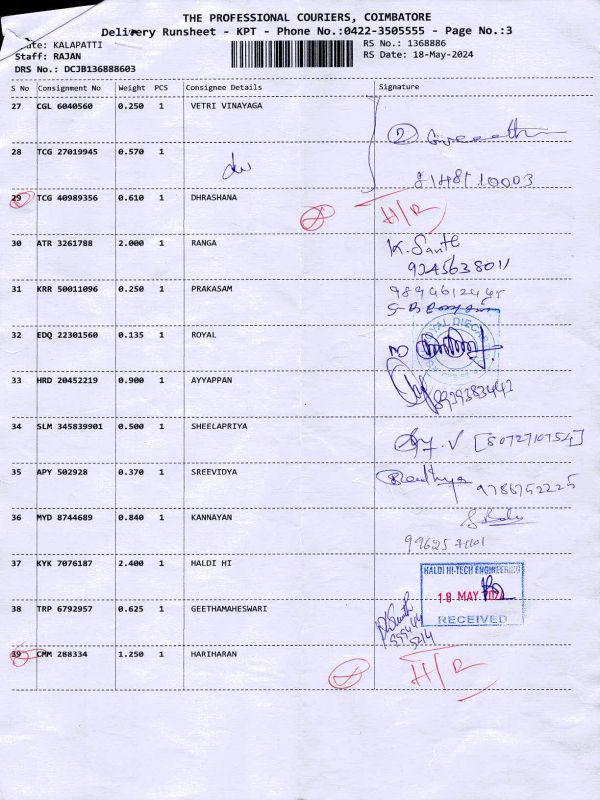 THE PROFESSIONAL COURIERS, COIMBATORE
Delivery Runsheet - KPT - Phone No.:0422-3505555 - Page No.:3
KALAPATTI RS No.: 1368886
Staff: RAJAN RS Date: 18-May-2024
DRS No.: DCJB136888603
S No Consignment No Weight PCS Consignee Details Signature
27 CGL 6040560 0.250 1 VETRI VINAYAGA
2
28 TCG 27019945 0.570 1
8148110003
29 TCG 40989356 0.610 1 DHRASHANA H/R
30 ATR 3261788 2.000 1 RANGA K. Santh
9245638011
31 KRR 50011096 0.250 1 PRAKASAM
32 EDQ 22301560 0.135 1 ROYAL
33 HRD 20452219 0.900 1 AYYAPPAN
8939383442
34 SLM 345839901 0.500 1 SHEELAPRIYA [8072710754]
35 APY 502928 0.370 1 SREEVIDYA
9786752225
36 MYD 8744689 0.840 1 KANNAYAN
37 KYK 7076187 2.400 1 HALDI HI HALDI HI-TECH ENGINEERING
18 MAY
RECEIVED
38 TRP 6792957 0.625 1 GEETHAMAHESWARI
39 CMM 288334 1.250 1 HARIHARAN H/R